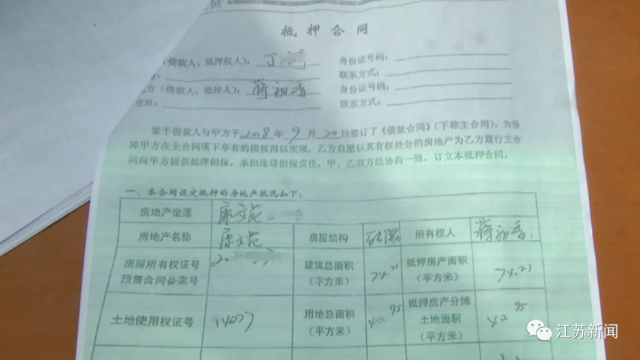 抵押合同
(贷款人、抵押权人): 丁 身份证号码:
联系方式:
方(借款人、抵押人): 蒋祖香 身份证号码:
住址: 联系方式:
鉴于借款人与甲方于2018年9月20日签订了《借款合同》(下称主合同),为保
障甲方在主合同项下享有的债权得以实现,乙方自愿以其有权处分的房地产为乙方履行主合
同向甲方提供抵押担保,承担连带担保责任,甲、乙双方经协商一致,订立本抵押合同。
一、本合同设定抵押的房地产状况如下:
房地产坐落 康文苑
房地产名称 康文苑 房屋结构 所有权人 蒋祖香
房屋所有权证号 建筑总面积 74.21 抵押房产面积 74.21
预售合同备案号 (平方米) (平方米)
土地使用权证号 14077 用地总面积 40.95 抵押房产分摊 40.95
(平方米) 土地面积
(平方米)
江苏新闻